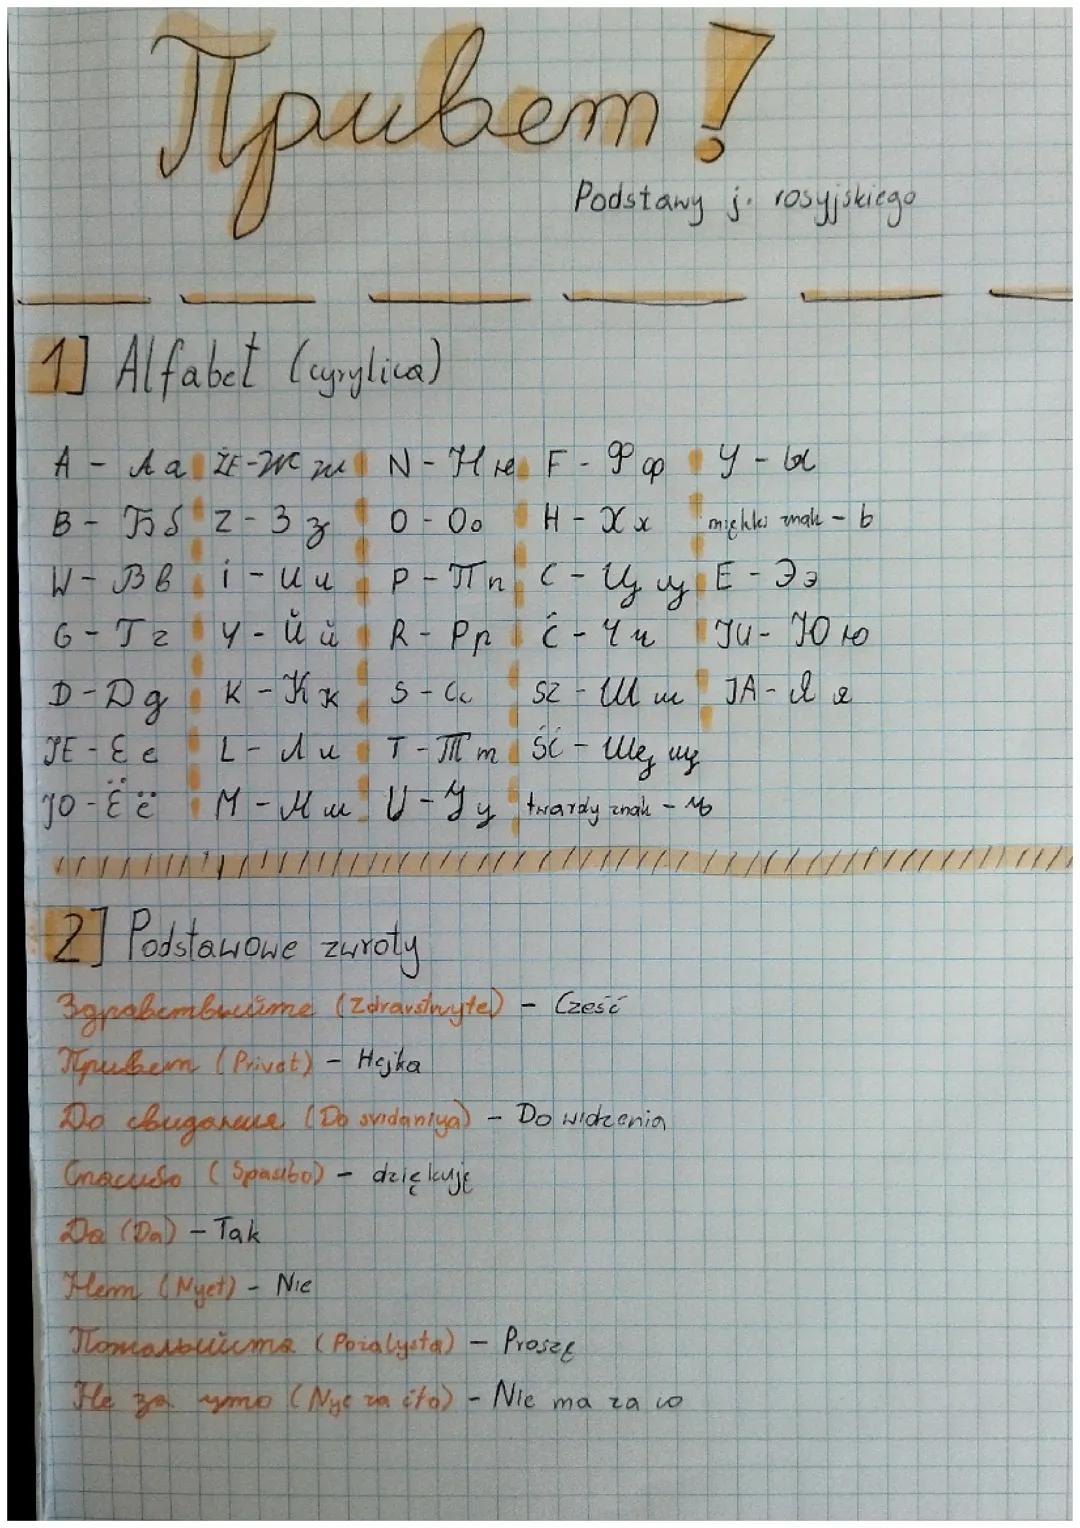 Привет!
Podstawy j. rosyjskiego
1] Alfabet (cyrylica)
A - Аа ŻE - Жж N - Нн F - Фф Y - ы
B - Бб Z - Зз O - Оо H - Хх miękki znak - ь
W - Вв i - Ии P - Пп C - Цц E - Ээ
G - Гг Y - Йй R - Рр Ć - Чч JU - Юю
D - Дд K - Кк S - Сс SZ - Шш JA - Яя
JE - Ее L - Лл T - Тт ŚĆ - Щщ
JO - Ёё M - Мм U - Уу twardy znak - ъ
2] Podstawowe zwroty
(Zdravstvuyte) - Cześć
Привет (Privet) - Hejka
До свидания (Do svidaniya) - Do widzenia
Спасибо (Spasibo) - dziękuję
Да (Da) - Tak
Нет (Nyet) - Nie
(Pozalysta) - Proszę
Не за что (Nye za čto) - Nie ma za co